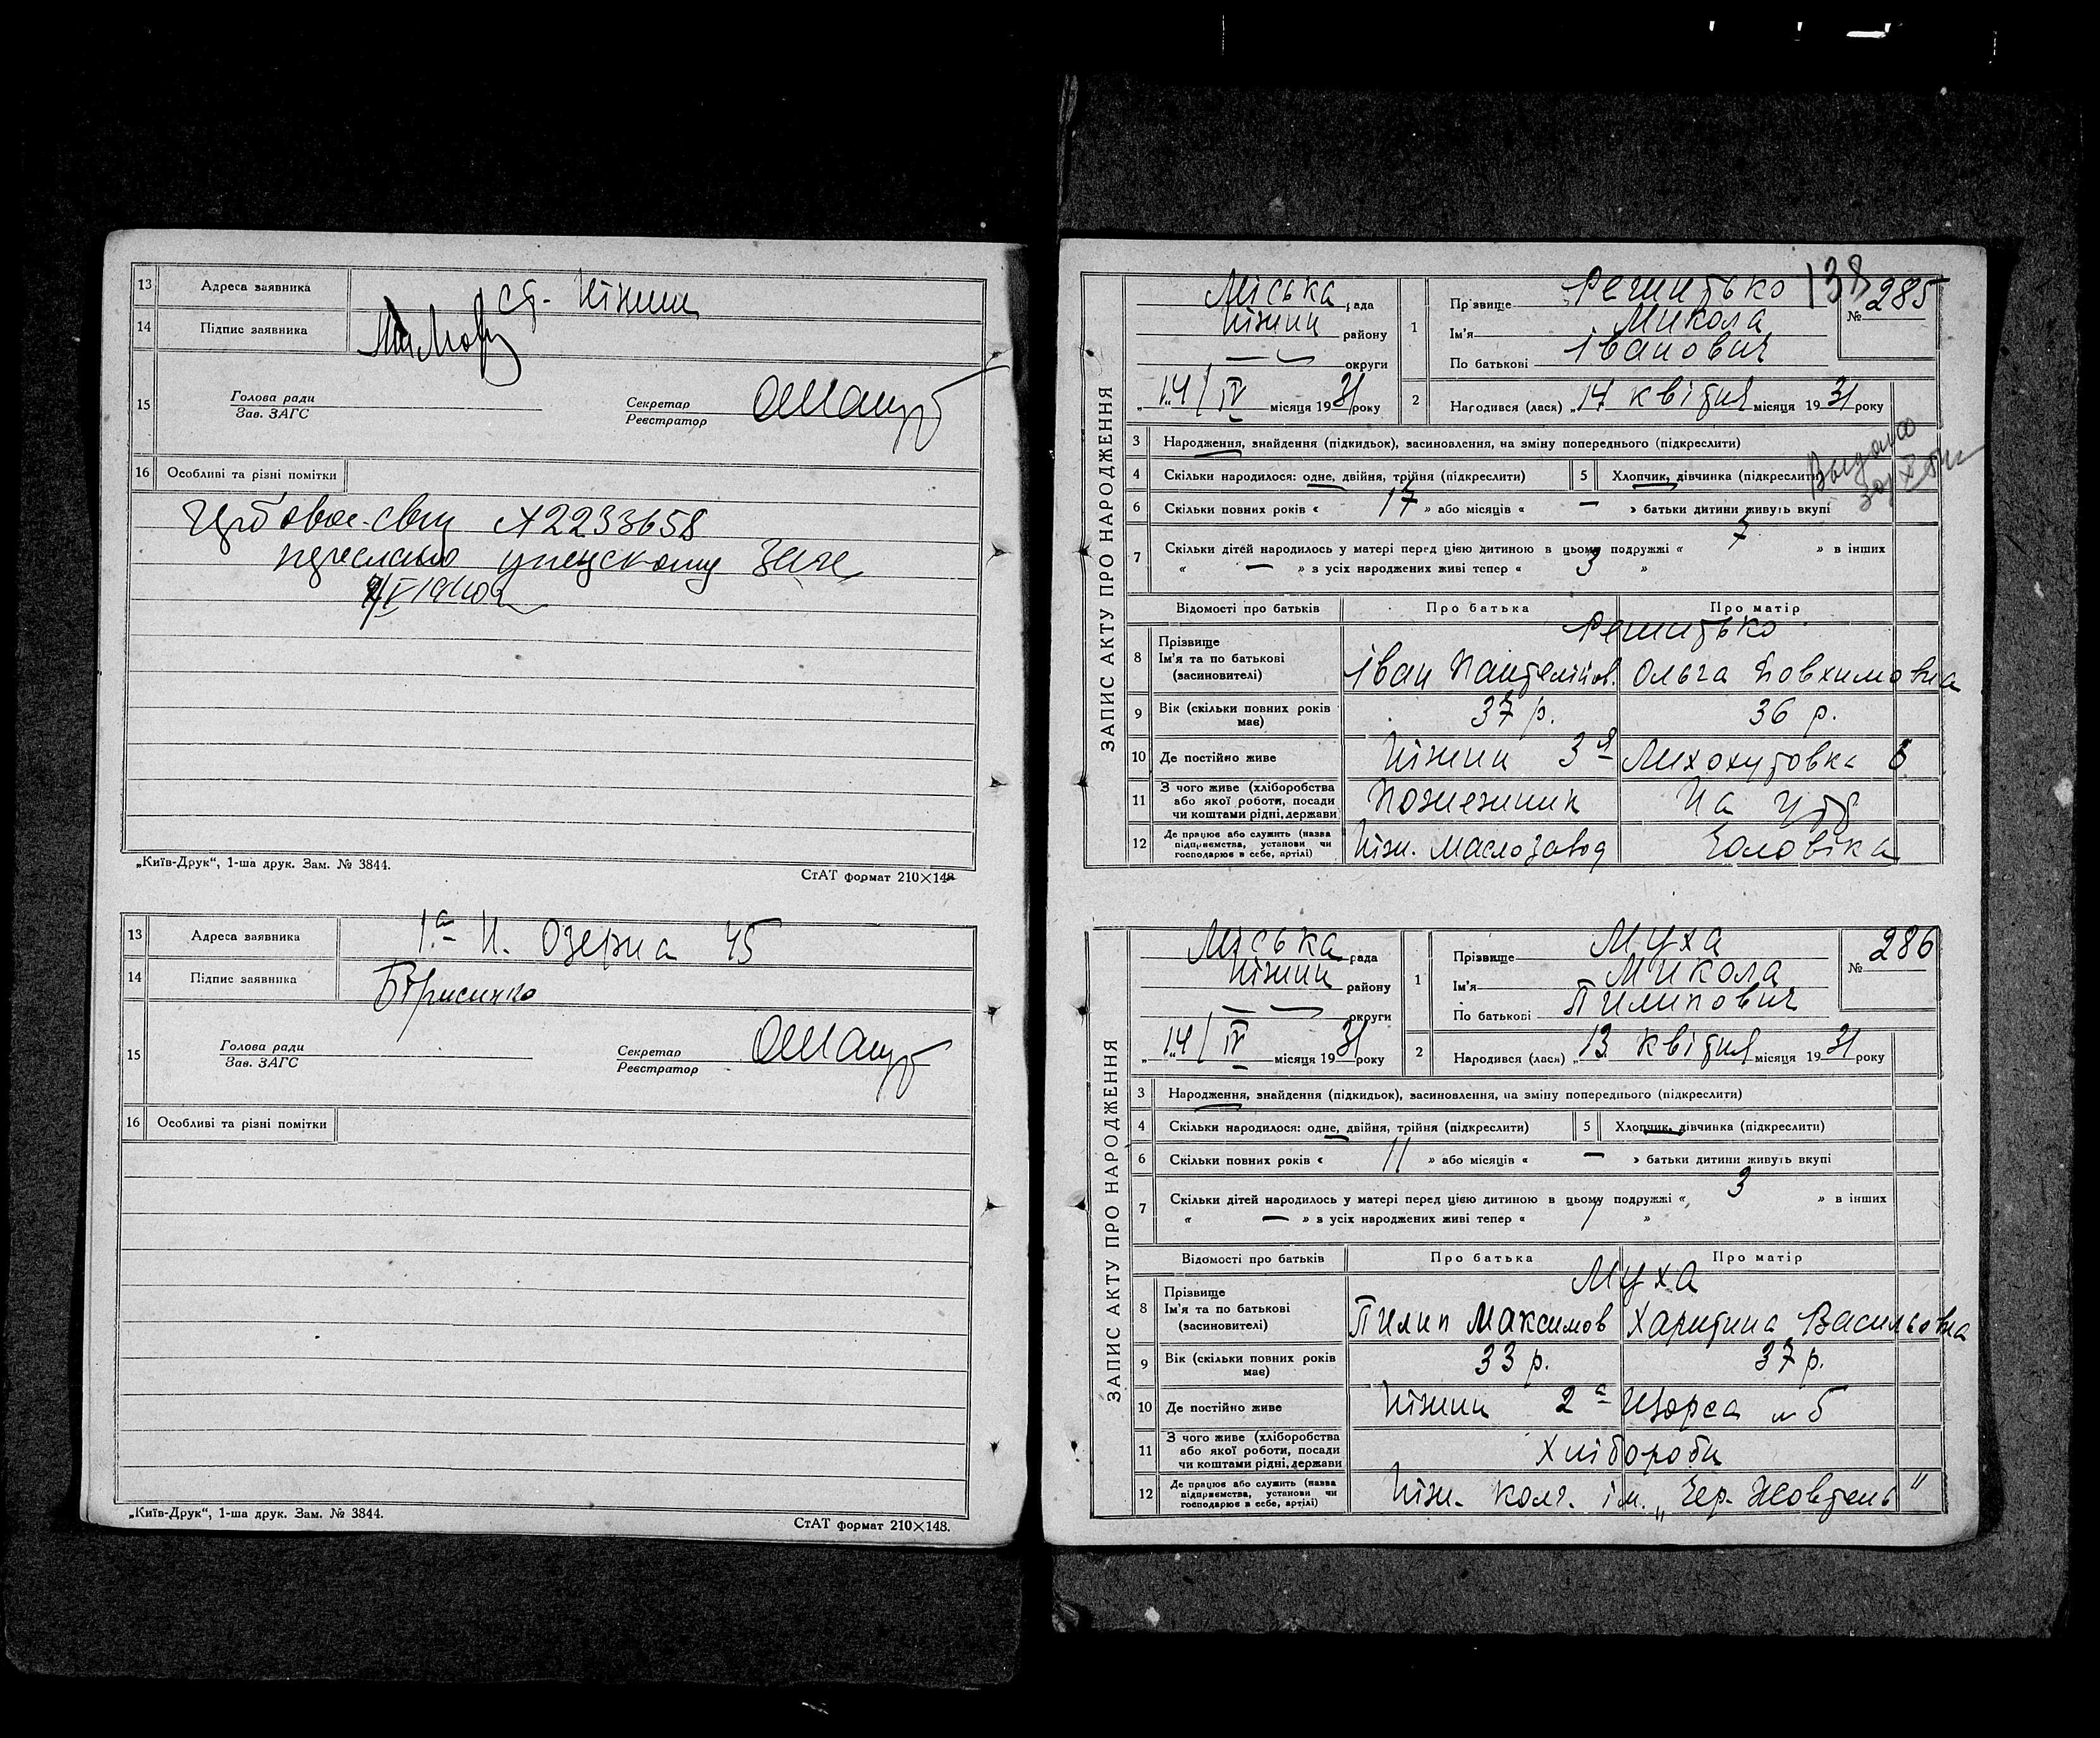 13 Адреса заявника ст. Ніжин
14 Підпис заявника
15 Голова ради
Зав. ЗАГС
Секретар
Реєстратор
16 Особливі та різні помітки
А2233658
переслано
1940
„Київ-Друк“, 1-ша друк. Зам. № 3844.
СтАТ формат 210×148
13 Адреса заявника 1а Н. Озерна 45
14 Підпис заявника
15 Голова ради
Зав. ЗАГС
Секретар
Реєстратор
16 Особливі та різні помітки
„Київ-Друк“, 1-ша друк. Зам. № 3844.
СтАТ формат 210×148.
ЗАПИС АКТУ ПРО НАРОДЖЕННЯ
138
Міська рада
Ніжин району
округи
„14/IV місяця 1931 року
1 Прізвище Решитько
Ім'я Микола
По батькові Іванович
№ 285
2 Народився (лася) „14 квітня місяця 1931 року
3 Народження, знайдення (підкидьок), засиновлення, на зміну попереднього (підкреслити)
4 Скільки народилося: одне, двійня, трійня (підкреслити) 5 Хлопчик, дівчинка (підкреслити)
Выдано
6 Скільки повних років « 17 » або місяців « — » батьки дитини живуть вкупі
7 Скільки дітей народилось у матері перед цією дитиною в цьому подружжі « 7 » в інших
« — » з усіх народжених живі тепер « 3 »
Відомості про батьків Про батька Про матір
8 Прізвище
Ім'я та по батькові
(засиновителі)
Решитько
Іван Пантелійов. ОльгаЮвхимовна
9 Вік (скільки повних років має) 37 р. 36 р.
10 Де постійно живе Ніжин 3я 6
11 З чого живе (хліборобства або якої роботи, посади чи коштами рідні, держави Пожежник На утр
12 Де працює або служить (назва підприємства, установи чи господарює в себе, артілі) Ніжн. Маслозавод Чоловіка
ЗАПИС АКТУ ПРО НАРОДЖЕННЯ
Міська рада
Ніжин району
округи
„14/IV місяця 1931 року
1 Прізвище Муха
Ім'я Микола
По батькові Пилипович
№ 286
2 Народився (лася) „13 квітня місяця 1931 року
3 Народження, знайдення (підкидьок), засиновлення, на зміну попереднього (підкреслити)
4 Скільки народилося: одне, двійня, трійня (підкреслити) 5 Хлопчик, дівчинка (підкреслити)
6 Скільки повних років « 11 » або місяців « — » батьки дитини живуть вкупі
7 Скільки дітей народилось у матері перед цією дитиною в цьому подружжі « 3 » в інших
« — » з усіх народжених живі тепер « 1 »
Відомості про батьків Про батька Про матір
8 Прізвище
Ім'я та по батькові
(засиновителі)
Муха
Пилип Максимов Харитина Васильовна
9 Вік (скільки повних років має) 33 р. 37 р.
10 Де постійно живе Ніжин 2а Щорса № 5
11 З чого живе (хліборобства або якої роботи, посади чи коштами рідні, держави Хлібороби
12 Де працює або служить (назва підприємства, установи чи господарює в себе, артілі) Ніжн. колг. ім. „Чер. Жовтень"